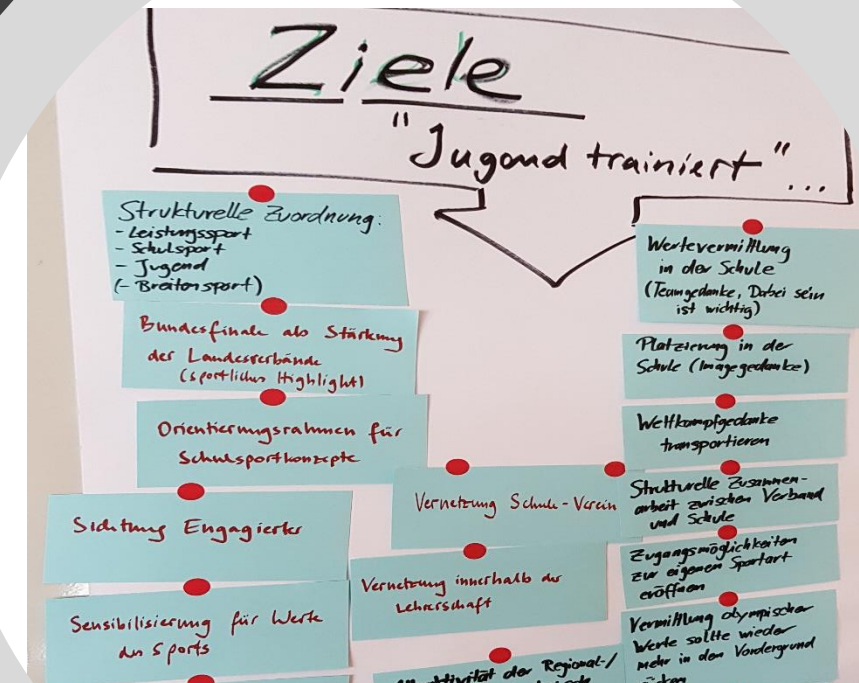 Ziele
"Jugend trainiert"...
Strukturelle Zuordnung:
- Leistungssport
- Schulsport
- Jugend
(- Breitensport)
Bundesfinale als Stärkung
der Landesverbände
(sportliches Highlight)
Orientierungsrahmen für
Schulsportkonzepte
Sichtung Engagierter
Sensibilisierung für Werte
des Sports
Vernetzung Schule-Verein
Vernetzung innerhalb der
Lehrerschaft
der Regional-/
Wertevermittlung
in der Schule
(Teamgedanke, Dabei sein
ist wichtig)
Platzierung in der
Schule (Imagegedanke)
Wettkampfgedanke
transportieren
Strukturelle Zusammen-
arbeit zwischen Verband
und Schule
Zugangsmöglichkeiten
zur eigenen Sportart
eröffnen
Vermittlung olympischer
Werte sollte wieder
mehr in den Vordergrund